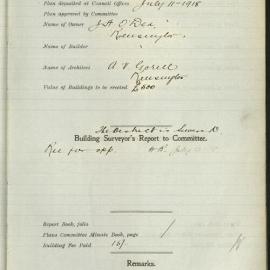 Plan deposited at Council Offices July 11-1918
Plan approved by Committee
Name of Owner J.A. O'Dea
Kensington
Name of Builder
Name of Architect A V Gorell
Kensington
Value of Buildings to be erected £400
The District is Sewered
Building Surveyor's Report to Committee.
Rec for app. July
Report Book, folio
Plans Committee Minute Book, page
Building Fee Paid 15/.
Remarks.